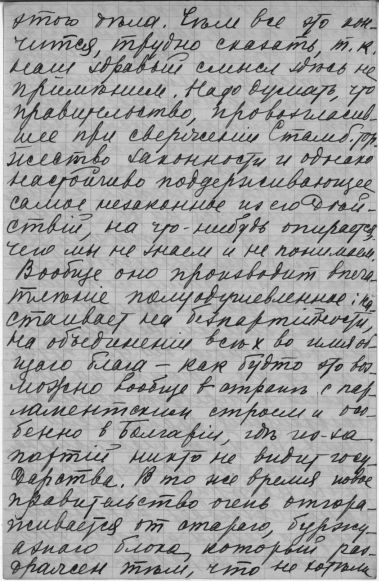 этого дѣла. Чѣмъ все это кон-
чится, трудно сказать, т. к.
нашъ здравый смыслъ здѣсь не
примѣнимъ. Надо думать, что
правительство, провозгласив-
шее при сверженіи Стамб. тор-
жество законности и однако
настойчиво поддерживающее
самое незаконное из его дѣй-
ствій, на что-нибудь опирается,
чего мы не знаем и не понимаем.
Вообще оно производит впеча-
тлѣніе полуодушевленное: на-
стаивает на безпартійности,
на объединеніи всѣх во имя об-
щаго блага – как будто это воз-
можно вообще в странѣ с пар-
ламентским строем и осо-
бенно в Болгаріи, гдѣ из-за
партій никто не видит госу-
дарства. В то же время новое
правительство очень отгора-
живается от стараго, буржу-
азнаго блока, который раз-
дражен тѣм, что не